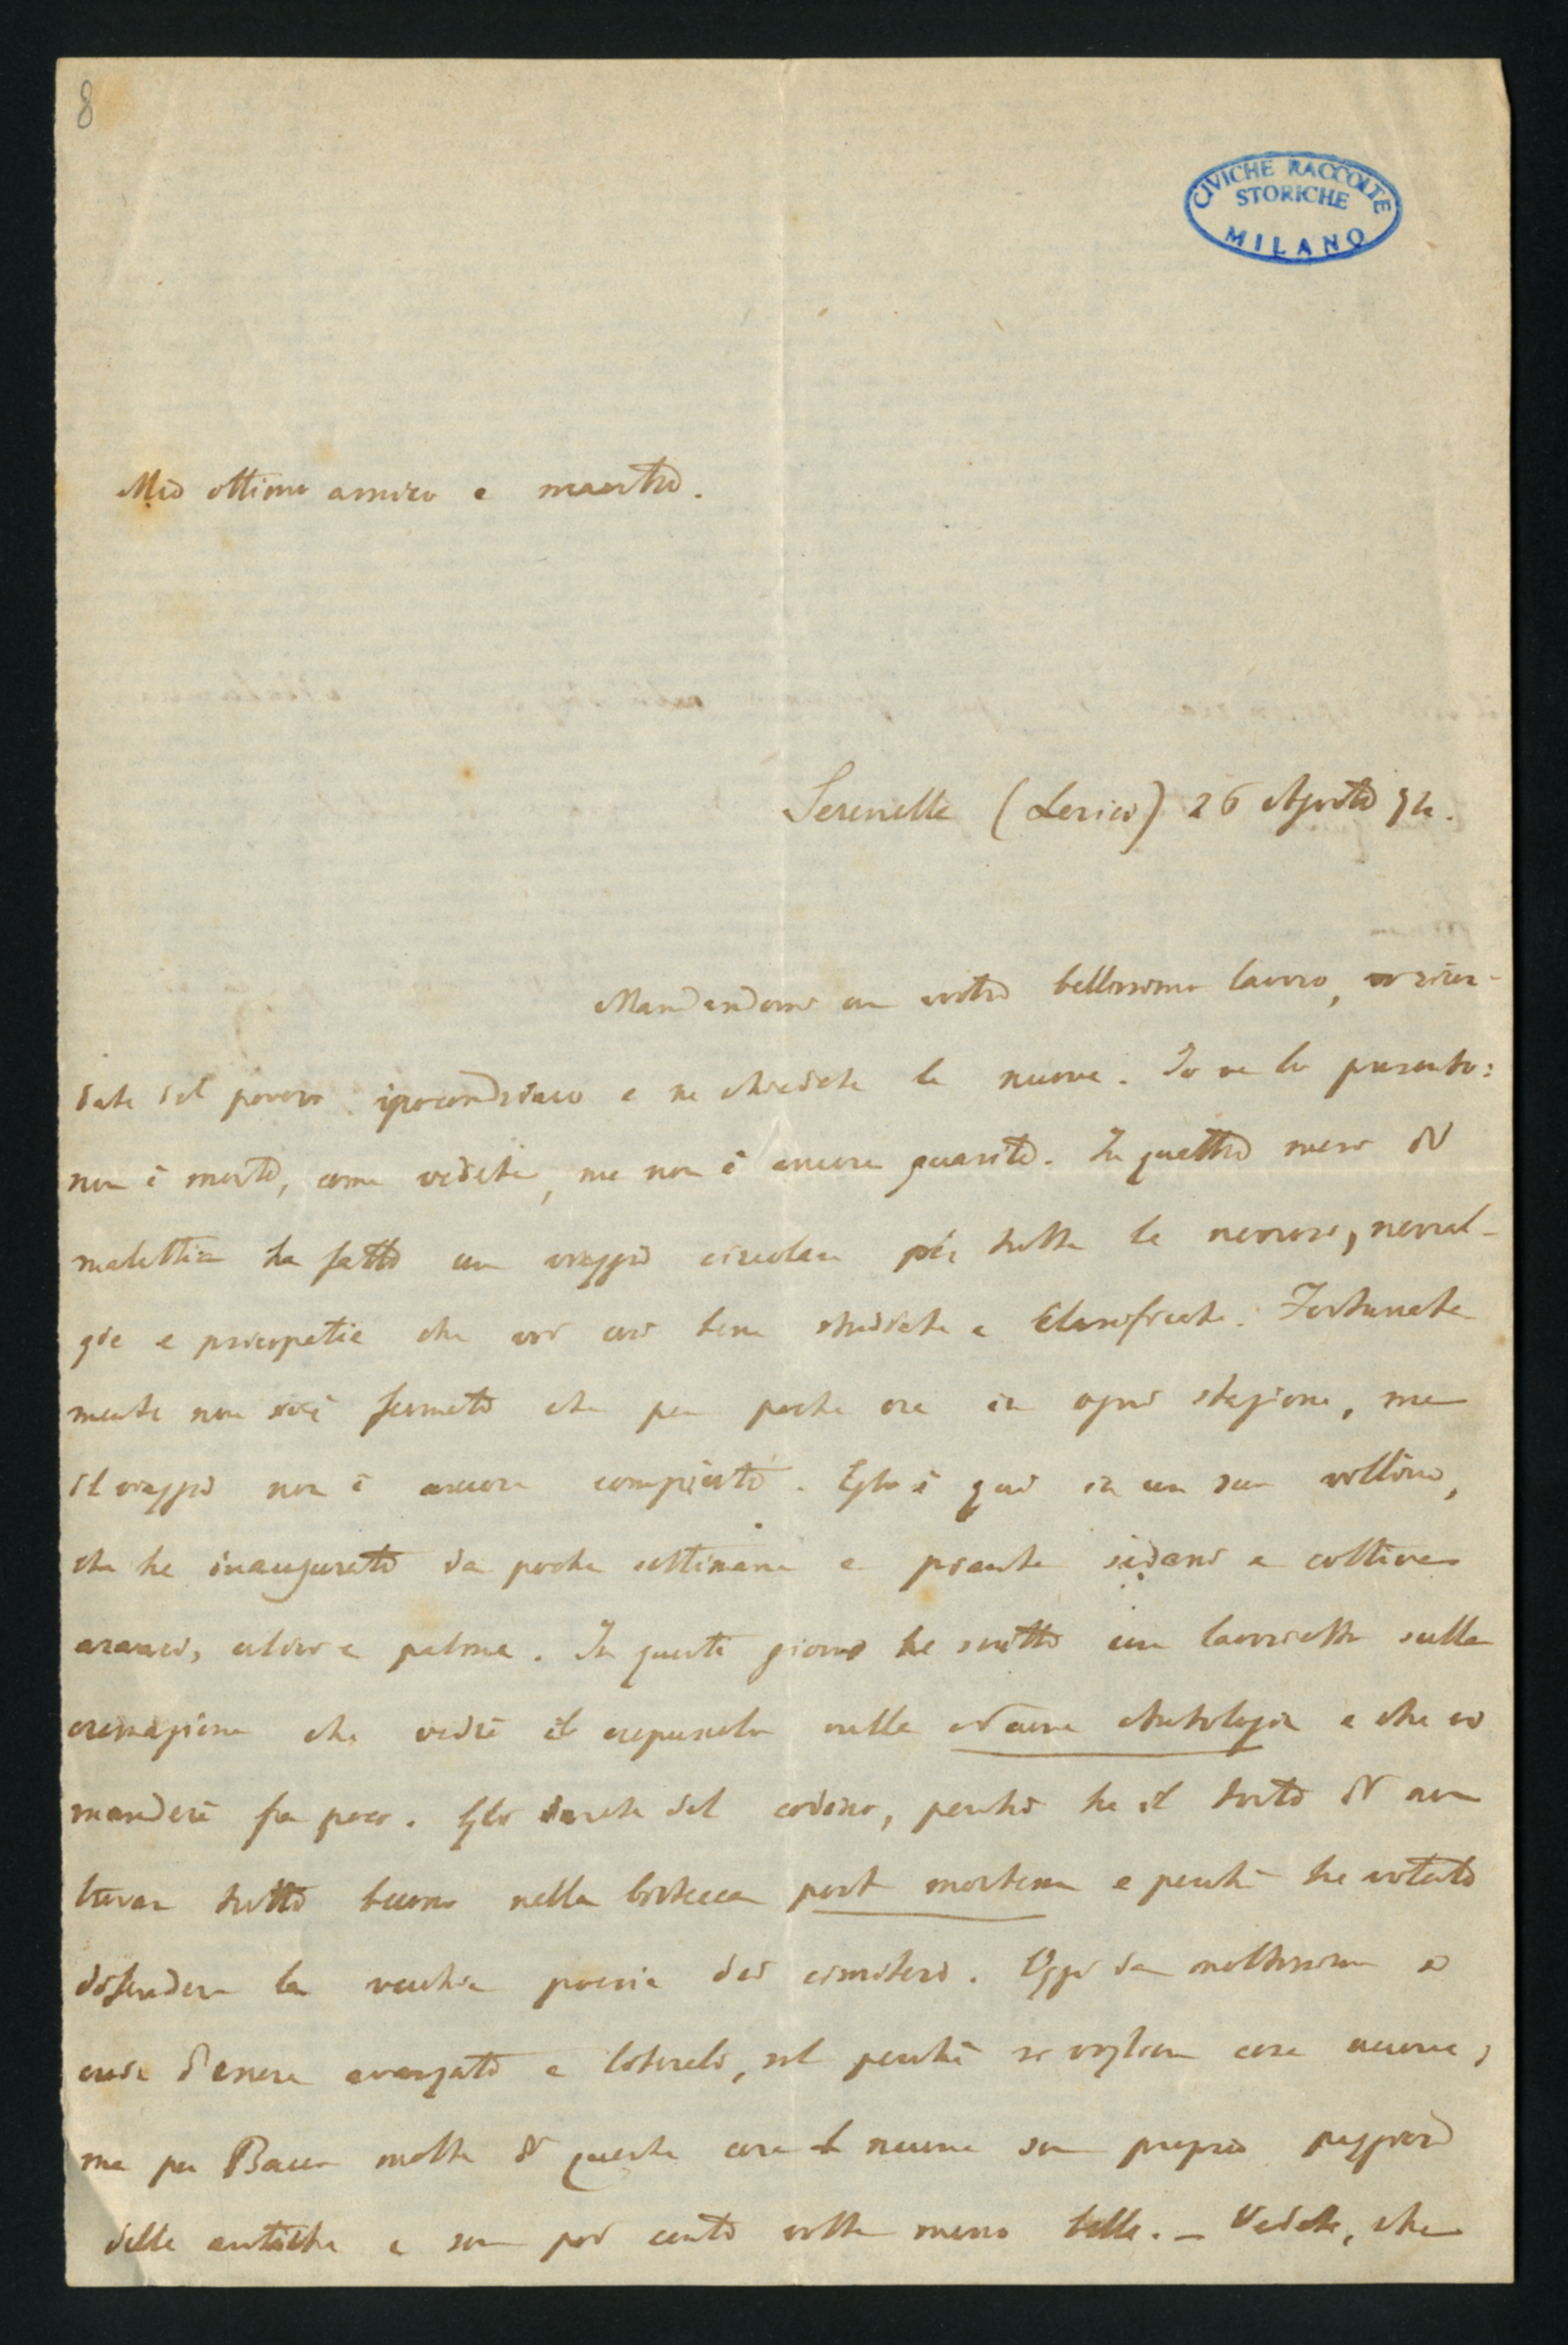 8
CIVICHE RACCOLTE
STORICHE
MILANO
Mio ottimo amico e maestro.
Serenella (Lerici) 26 Agosto 74.
Mandandomi un vostro bellissimo lavoro, vi ricor-
date del povero ipocondriaco e ne chiedete le nuove. Io ve lo presento:
non è morto, come vedete, ma non è ancora guarito. In quattro mesi di
malattia ha fatto un viaggio circolare per tutte le nevrosi, nevral-
gie e psicopatie che voi così bene studiate e classificate. Fortunata
mente non si è fermato che per poche ore in ogni stazione, ma
il viaggio non è ancora compiuto. Egli è qui in un suo villino,
che ha inaugurato da poche settimane e pianta sedani e coltiva
aranci, ulivi e palme. In questi giorni ha scritto un lavoretto sulla
cremazione che vedrà il crepuscolo nella Nuova Antologia e che vi
manderà fra poco. Gli darete del codino, perché ha il torto di non
trovar tutto buono nella bistecca post mortem e perché ha votato
difendere la vecchia poesia dei cimiteri. Oggi da moltissimi si
crede d'essere avanzato e liberali, sol perché si vogliono cose nuove;
ma per Bacco molte di queste cose nuove son proprio peggiori
delle antiche e son poi cento volte meno belle. - Vedete, che